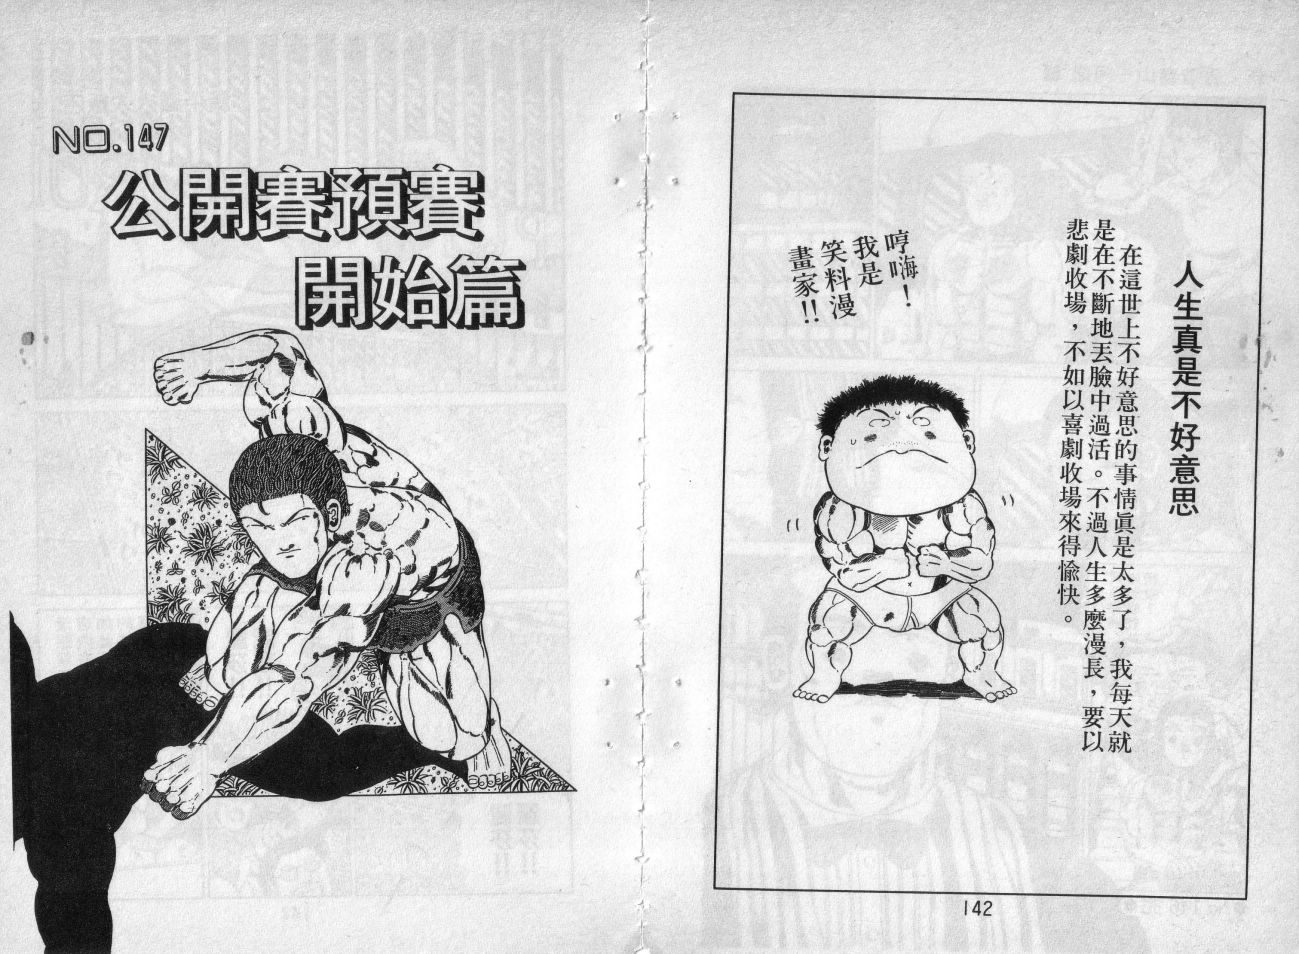 人生真是不好意思
在這世上不好意思的事情眞是太多了，我每天就
是在不斷地丟臉中過活。不過人生多麼漫長，要以
悲劇收場，不如以喜劇收場來得愉快。
哼嗨！
我是
笑料漫
畫家!!
142
NO.147
公開賽預賽
開始篇